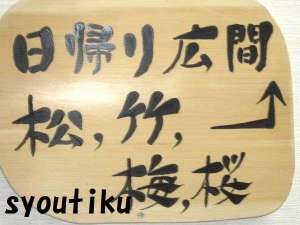 日帰り広間
松,竹,
梅,桜
syoutiku